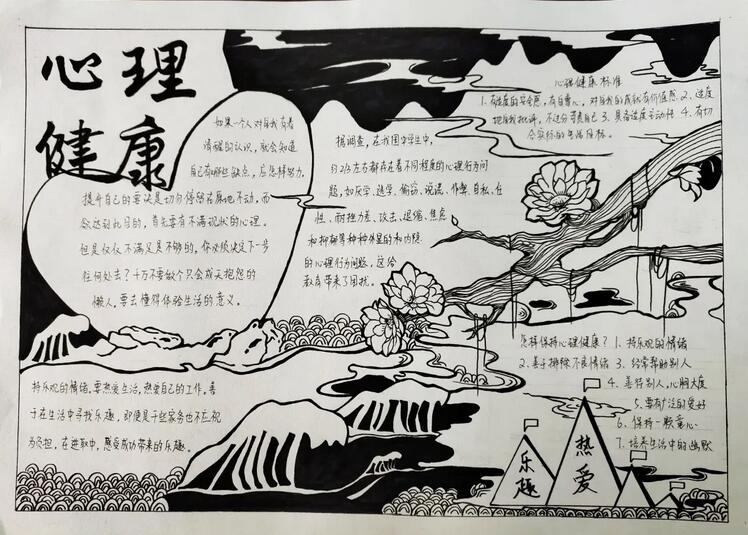 心理
健康
如果一个人对自我有着
情确的认识，就会知道
自己有哪些缺点，应怎样努力，
提升自己的要诀是切勿停留在原地不动，而
欲达到此目的，首先要有不满现状的心理。
但是仅仅不满足是不够的，你必须决定下一步
往何处去？千万不要做个只会成天抱怨的
懒人，要去懂得体验生活的意义。
据调查，在我国中学生中，
约2/3左右都存在着不同程度的心理行为问
题，如厌学、逃学、偷窃、说谎、作弊、自私、任
性、耐挫力差、攻击、退缩、焦虑
和抑郁等种种外显的和内隐
的心理行为问题，这给
教育带来了困扰。
心理健康标准
1、有适度的安全感，有自尊心，对自我的成就有价值感 2、适度
地自我批评，不过分夸责自己 3、具有适度主动性 4、有切
合实际的生活目标。
持乐观的情绪，要热爱生活，热爱自己的工作，善
于在生活中寻找乐趣，即使是干些家务也不应视
为负担，在进取中，感受成功带来的乐趣。
怎样保持心理健康？ 1、持乐观的情绪
2、善于排除不良情绪 3、经常帮助别人
4、善待别人，心胸大度
5、要有广泛的爱好
6、保持一颗童心
7、培养生活中的幽默
乐趣
热爱